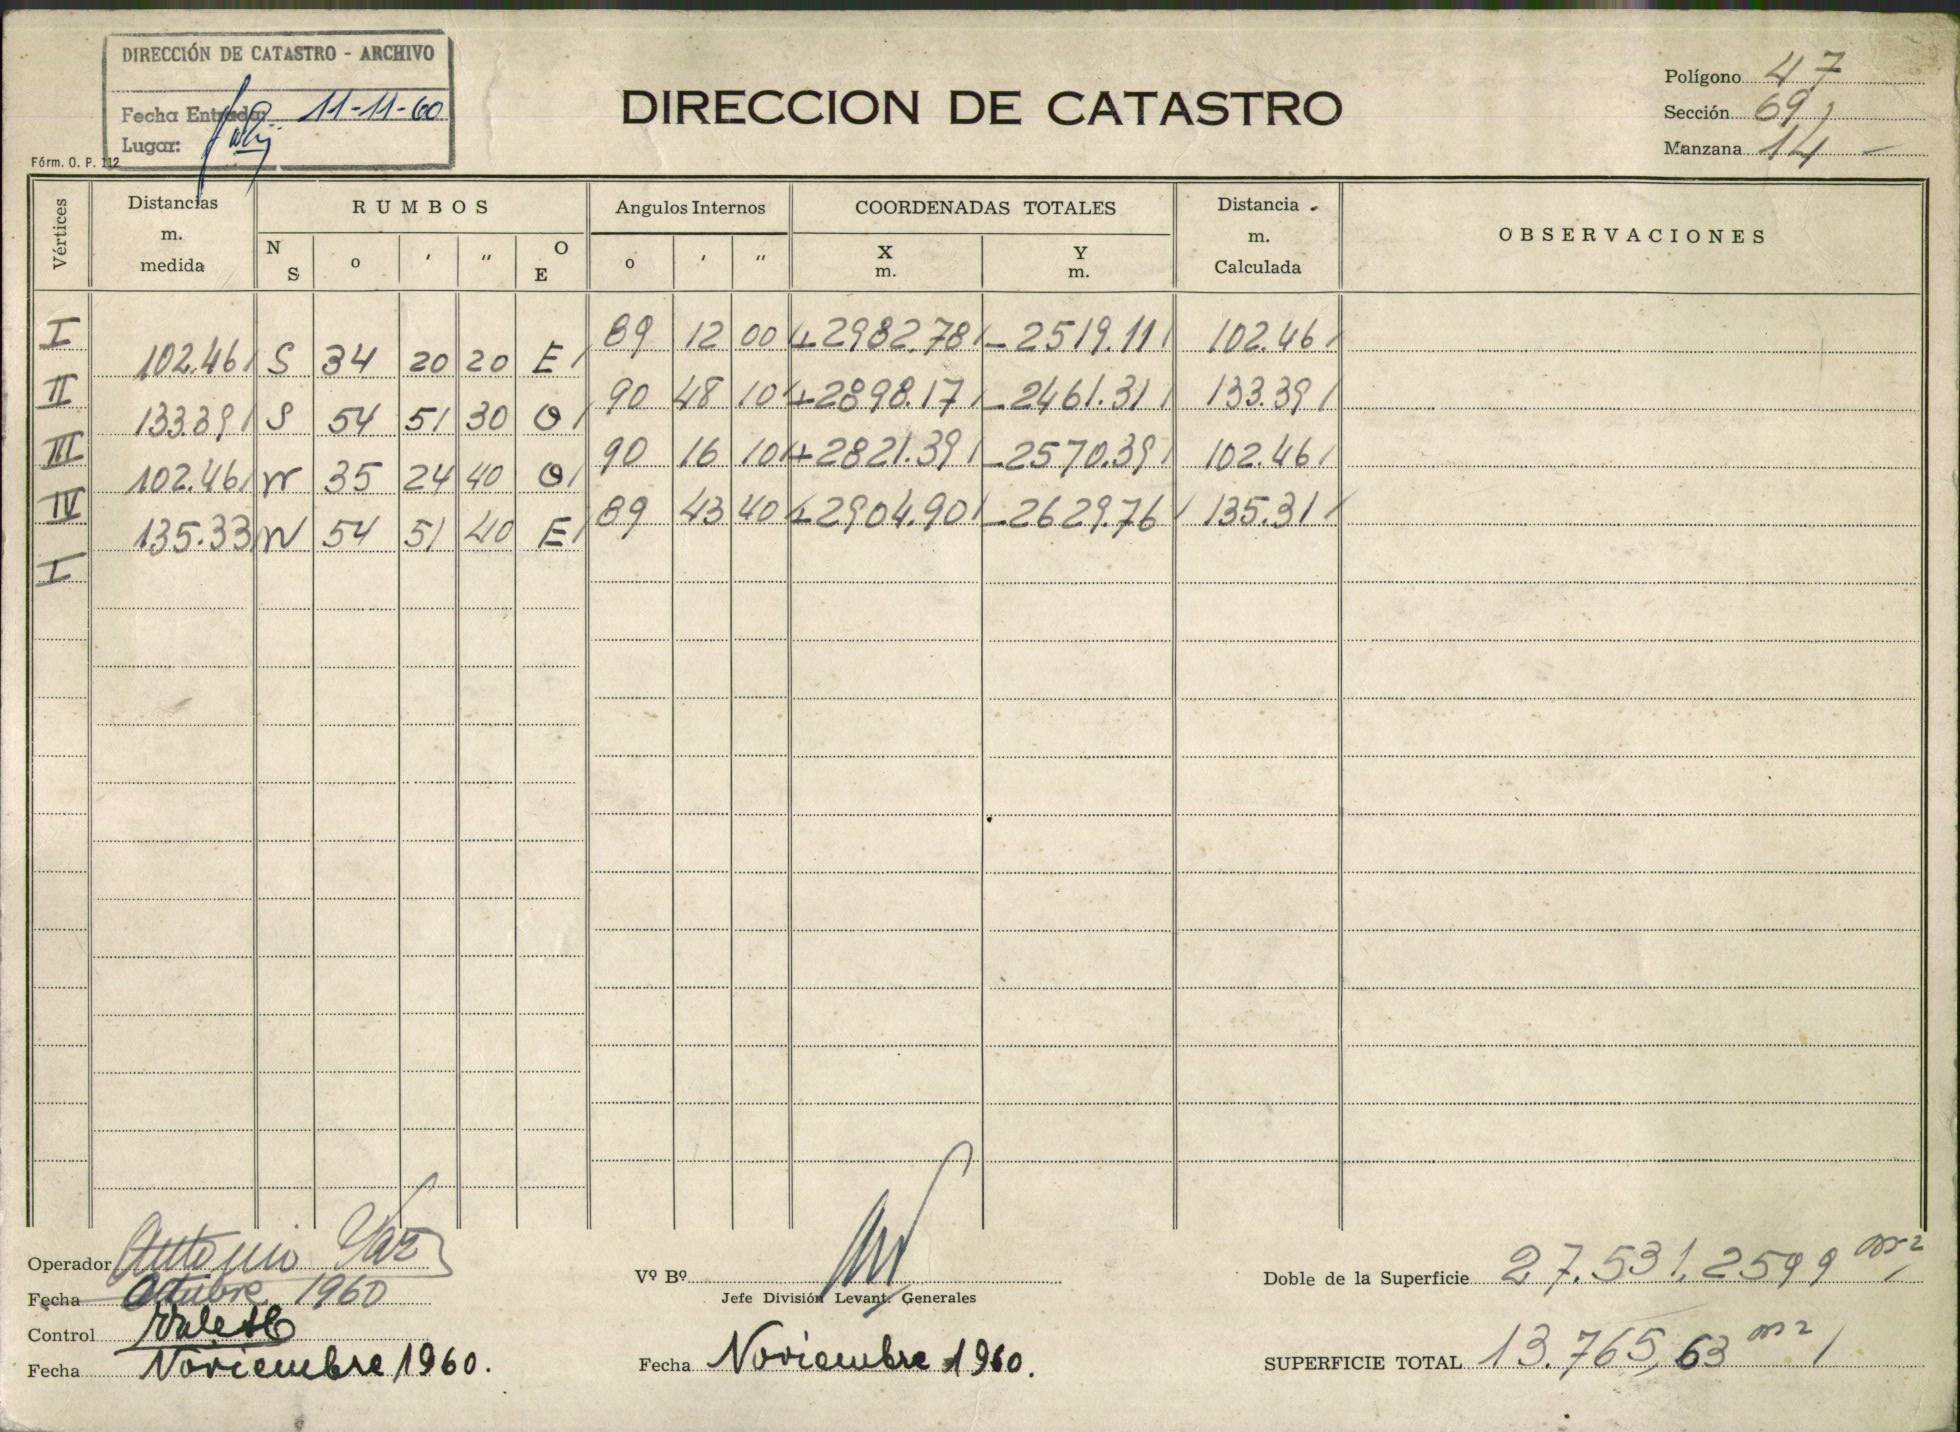 DIRECCIÓN DE CATASTRO - ARCHIVO
Fecha Entrada: 11-11-60
Lugar:
Fórm. O. P. 112
DIRECCION DE CATASTRO
Polígono 47
Sección 69
Manzana 14
Vértices Distancias m. medida RUMBOS Angulos Internos COORDENADAS TOTALES Distancia m. Calculada OBSERVACIONES
N S o ' '' O E o ' '' X m. Y m.
I 89 12 00 +2982.78 -2519.11 102.46
102.46 S 34 20 20 E
II 90 48 10 +2898.17 -2461.31 133.39
133.39 S 54 51 30 O
III 90 16 10 +2821.39 -2570.39 102.46
102.46 N 35 24 40 O
IV 89 43 40 +2904.90 -2629.76 135.31
135.33 N 54 51 40 E
I
Operador Antonio
Fecha Octubre 1960
Control
Fecha Noviembre 1960.
Vº Bº
Jefe División Levant. Generales
Fecha Noviembre 1960.
Doble de la Superficie 27.531,2599 m2
SUPERFICIE TOTAL 13.765,63 m2